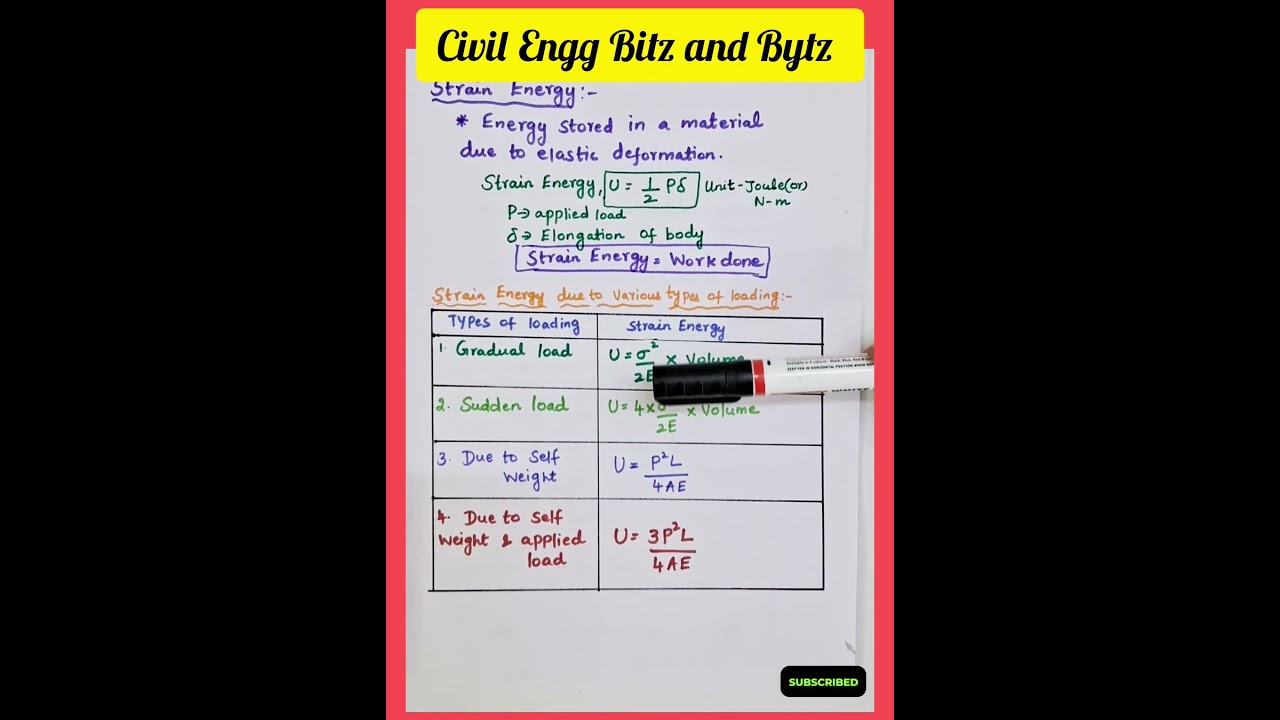 Civil Engg Bitz and Bytz
Strain Energy:-
* Energy stored in a material
due to elastic deformation.
Strain Energy, U = 1/2 Pδ Unit-Joule(or)
N-m
P→ applied load
δ→ Elongation of body
Strain Energy = Work done
Strain Energy due to various types of loading:-
Types of loading Strain Energy
1. Gradual load U = σ²/2E × Volume
2. Sudden load U = 4×σ/2E × Volume
3. Due to Self U = P²L/4AE
Weight
4. Due to Self
Weight & applied U = 3P²L/4AE
load
SUBSCRIBED